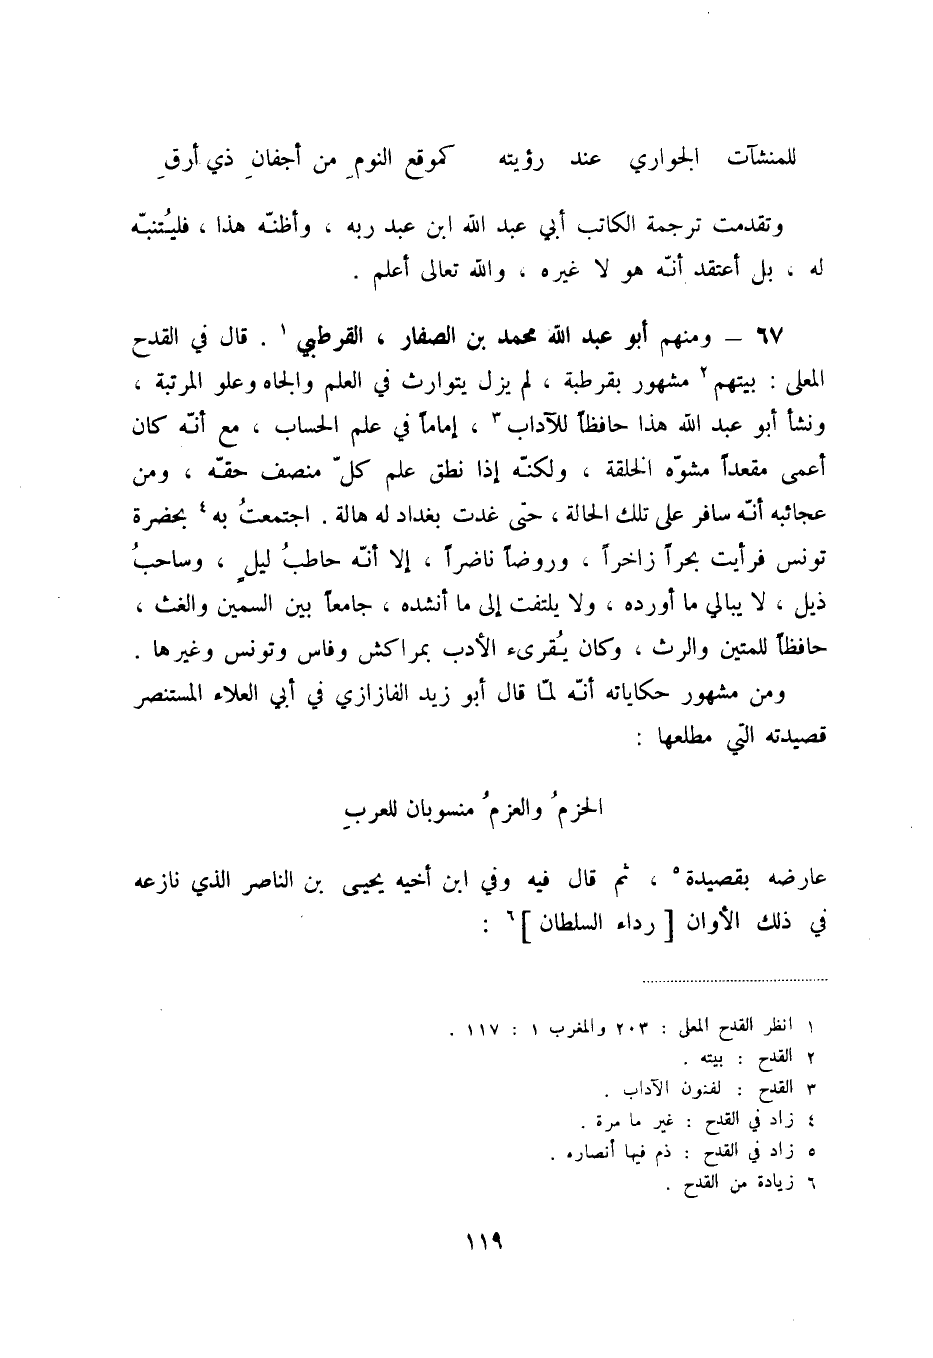 للمنشآت الجواري عند رؤيته كموقع النومِ من أجفانِ ذي أرقِ
وتقدمت ترجمة الكاتب أبي عبد الله ابن عبد ربه ، وأظنّه هذا ، فليُتنبّه
له ، بل أعتقد أنّه هو لا غيره ، والله تعالى أعلم .
٦٧ – ومنهم أبو عبد الله محمد بن الصفار ، القرطبي ١ . قال في القدح
المعلى : بيتهم ٢ مشهور بقرطبة ، لم يزل يتوارث في العلم والجاه وعلو المرتبة ،
ونشأ أبو عبد الله هذا حافظاً للآداب ٣ ، إماماً في علم الحساب ، مع أنّه كان
أعمى مقعداً مشوّه الخلقة ، ولكنّه إذا نطق علم كلّ منصف حقّه ، ومن
عجائبه أنّه سافر على تلك الحالة ، حتى غدت بغداد له هالة . اجتمعتُ به ٤ بحضرة
تونس فرأيت بحراً زاخراً ، وروضاً ناضراً ، إلا أنّه حاطبُ ليلٍ ، وساحبُ
ذيل ، لا يبالي ما أورده ، ولا يلتفت إلى ما أنشده ، جامعاً بين السمين والغث ،
حافظاً للمتين والرث ، وكان يُقرىء الأدب بمراكش وفاس وتونس وغيرها .
ومن مشهور حكاياته أنّه لمّا قال أبو زيد الفازازي في أبي العلاء المستنصر
قصيدته التي مطلعها :
الحزمُ والعزمُ منسوبان للعربِ
عارضه بقصيدة ٥ ، ثم قال فيه وفي ابن أخيه يحيى بن الناصر الذي نازعه
في ذلك الأوان [ رداء السلطان ] ٦ :
١ انظر القدح المعلى : ٢٠٣ والمغرب ١ : ١١٧ .
٢ القدح : بيته .
٣ القدح : لفنون الآداب .
٤ زاد في القدح : غير ما مرة .
٥ زاد في القدح : ذم فيها أنصاره .
٦ زيادة من القدح .
١١٩